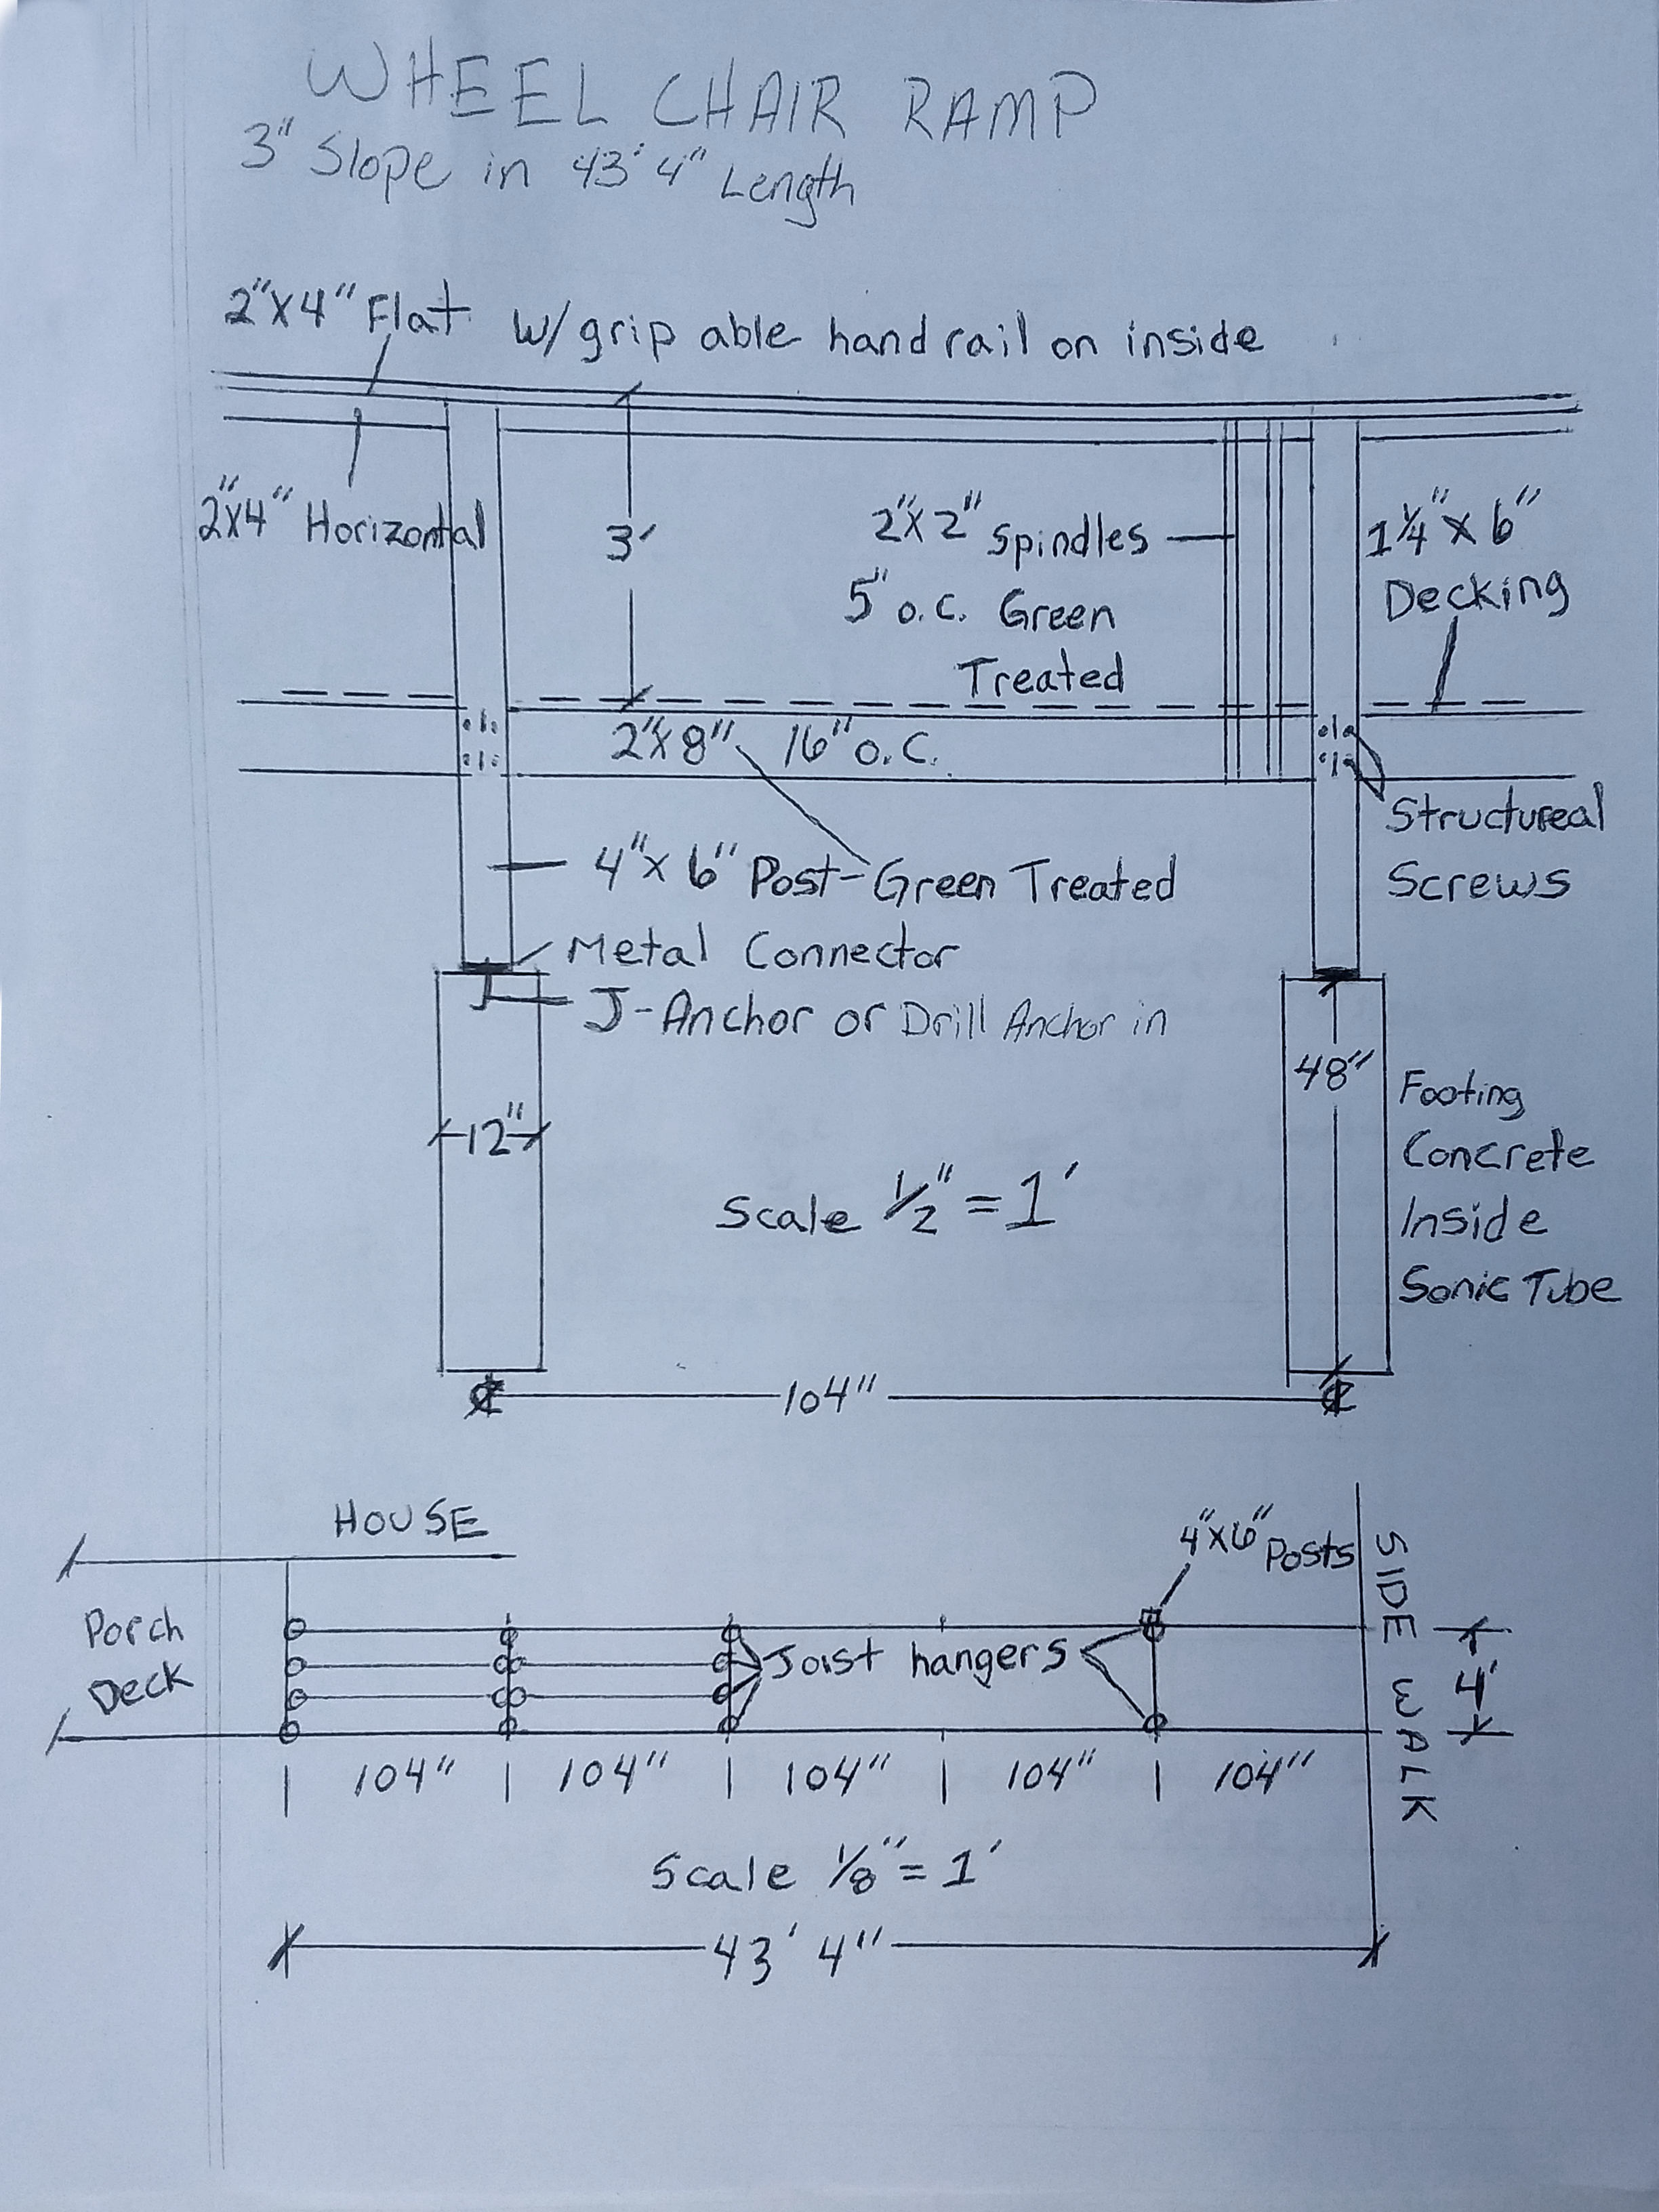 WHEEL CHAIR RAMP
3" Slope in 43' 4" Length
2"X4" Flat w/grip able handrail on inside
2"X4" Horizontal
3'
2"X2" Spindles
5" o.c. Green
Treated
1¼" x 6"
Decking
2"X8" 16" o.c.
Structureal
Screws
4"x6" Post-Green Treated
Metal Connector
J-Anchor or Drill Anchor in
12"
48"
Footing
Concrete
Inside
Sonic Tube
Scale ½" = 1'
℄ 104" ℄
HOUSE
4"x6" Posts
Porch
Deck
Joist hangers
SIDE WALK
4'
104" 104" 104" 104" 104"
Scale ⅛" = 1'
43' 4"